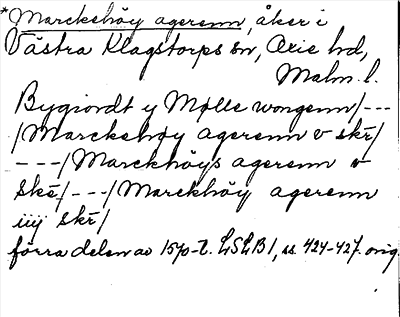 *Marckehöy agerenn, åker i
Västra Klagstorps sn, Oxie hd,
Malm. l.
Bygiordt y Mølle wongenn/---
/Marckehøy agerenn v skr/
---/Marckhöys agerenn v
Ske/---/Marckhöy agerenn
iiij skr/
förra delen av 1570-t. LSLB 1, ss. 424-427. orig.